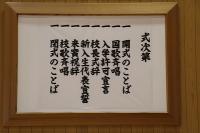 式次第
一 開式のことば
一 国歌斉唱
一 入学許可宣言
一 校長式辞
一 新入生代表宣誓
一 来賓祝辞
一 校歌斉唱
一 閉式のことば